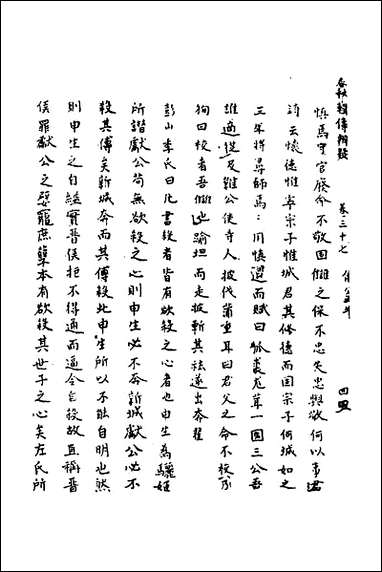 春秋輯傳辨疑　卷三十七　僖公　四
慎焉守官廢命不敬固讎之保不忠失忠與敬何以事君
詩云懷德惟寧宗子惟城君其修德而固宗子何城如之
三年將尋師焉焉用慎退而賦曰狐裘尨茸一國三公吾
誰適從及難公使寺人披伐蒲重耳曰君父之命不校乃
狥曰校者吾讎也踰垣而走披斬其袪遂出奔翟
彭山季氏曰此書殺者皆有欲殺之心者也申生為驪姬
所譖獻公苟無欲殺之心則申生必不奔新城獻公必不
殺其傅矣新城奔而其傅殺此申生所以不能自明也然
則申生之自縊實晉侯拒不得通而逼令自殺故直稱晉
侯罪獻公之嬖寵庶孽本有欲殺其世子之心矣左氏所